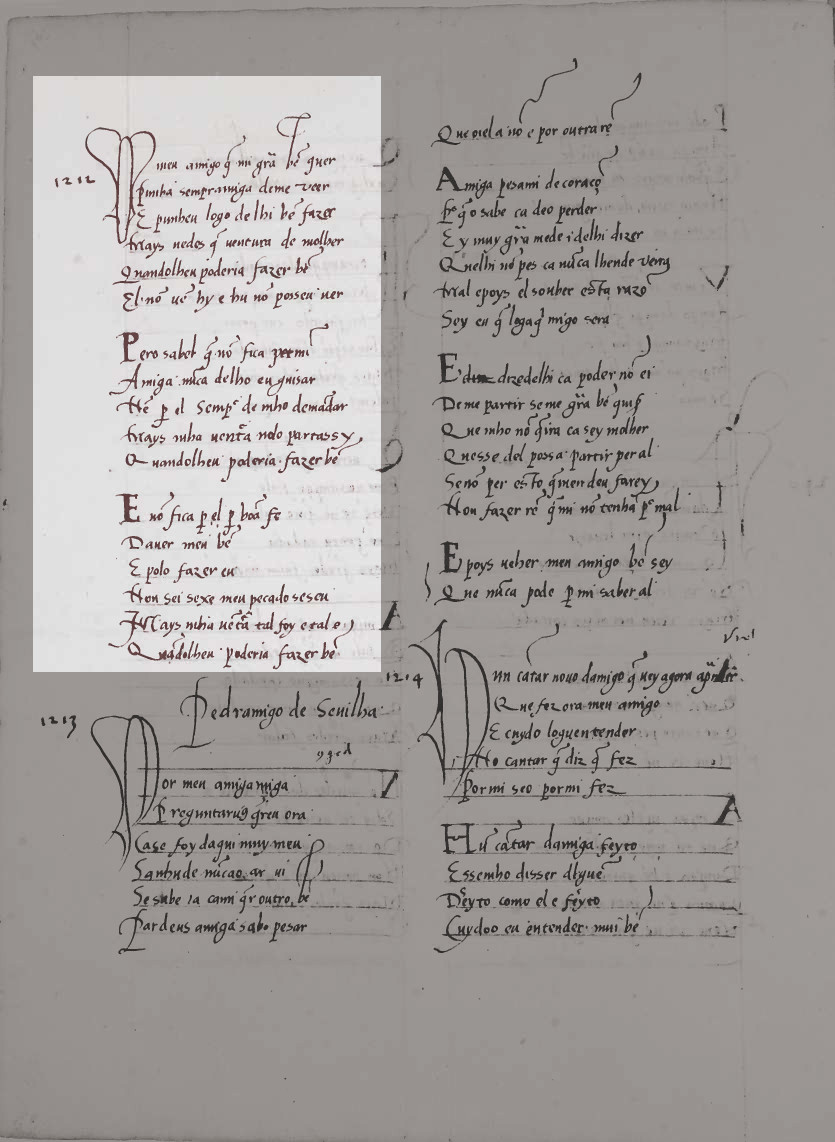 1212
meu amigo q̄ mi grã bẽ quer
punha sempramiga deme veer
E punheu logo de lhi bẽ fazer
Mays uedes q̄ uentura de molher
Quandolheu poderia fazer bẽ
El nõ uẽ hy e hu nõ posseu uer
Pero sabel q̄ nõ fica per mi
Amiga nũca delho eu guisar
Nẽ p̱ el semp̃ de mho demãdar
Mays mha uent̃a nolo partassy
Quandolheu poderia fazer bẽ
E nõ fica p̱ el p̱ boã fe
Dauer meu bẽ
E polo fazer eu
Non sei sexe meu pecado seseu
Mays mha uẽt̃a tal foy e tal e
Quãdolheu poderia fazer bẽ
1213
Pedramigo de Seuilha
Por meu amigamiga
Preguntarug q̃reu ora
Case foy daqui muy meu
Sanhude nũcao ar ui
Se sabe ia cami q̃r outro bẽ
Par deus amiga sabo pesar
Que oiela nõ e por outra rẽ
Amiga pesami de coraçõ
P̃ q̄ o sabe ca deo perder
E y muy grã mede i delhi dizer
Quelhi nõ pes ca nũca lhende uerra
Mal e poys el souber esta razõ
Sey eu q̄ logaq̄ migo sera
E dizedelhi ca poder nõ ei
De me partir se me grã bẽ quis
Que mho nõ q̃ira ca sey molher
Quesse del possa partir per al
Senõ per esto q̄mendeu farey
Non fazer rẽ q̄ mi nõ tenhã p̃ mal
E poys ueher meu amigo bẽ sey
Que nũca pode p̱ mi saber al
1214
Hun cãtar nouo damigo q̄rey agora ap̃nder
Que fez ora meu amigo
E cuydo loguentender
No cantar q̄ diz q̄ fez
Por mi seo por mi fez
Hũ cãtar damiga feyto
Essemho disser alguẽ
Dẽyto como el e feyto
Cuydoo eu entender mui bẽ